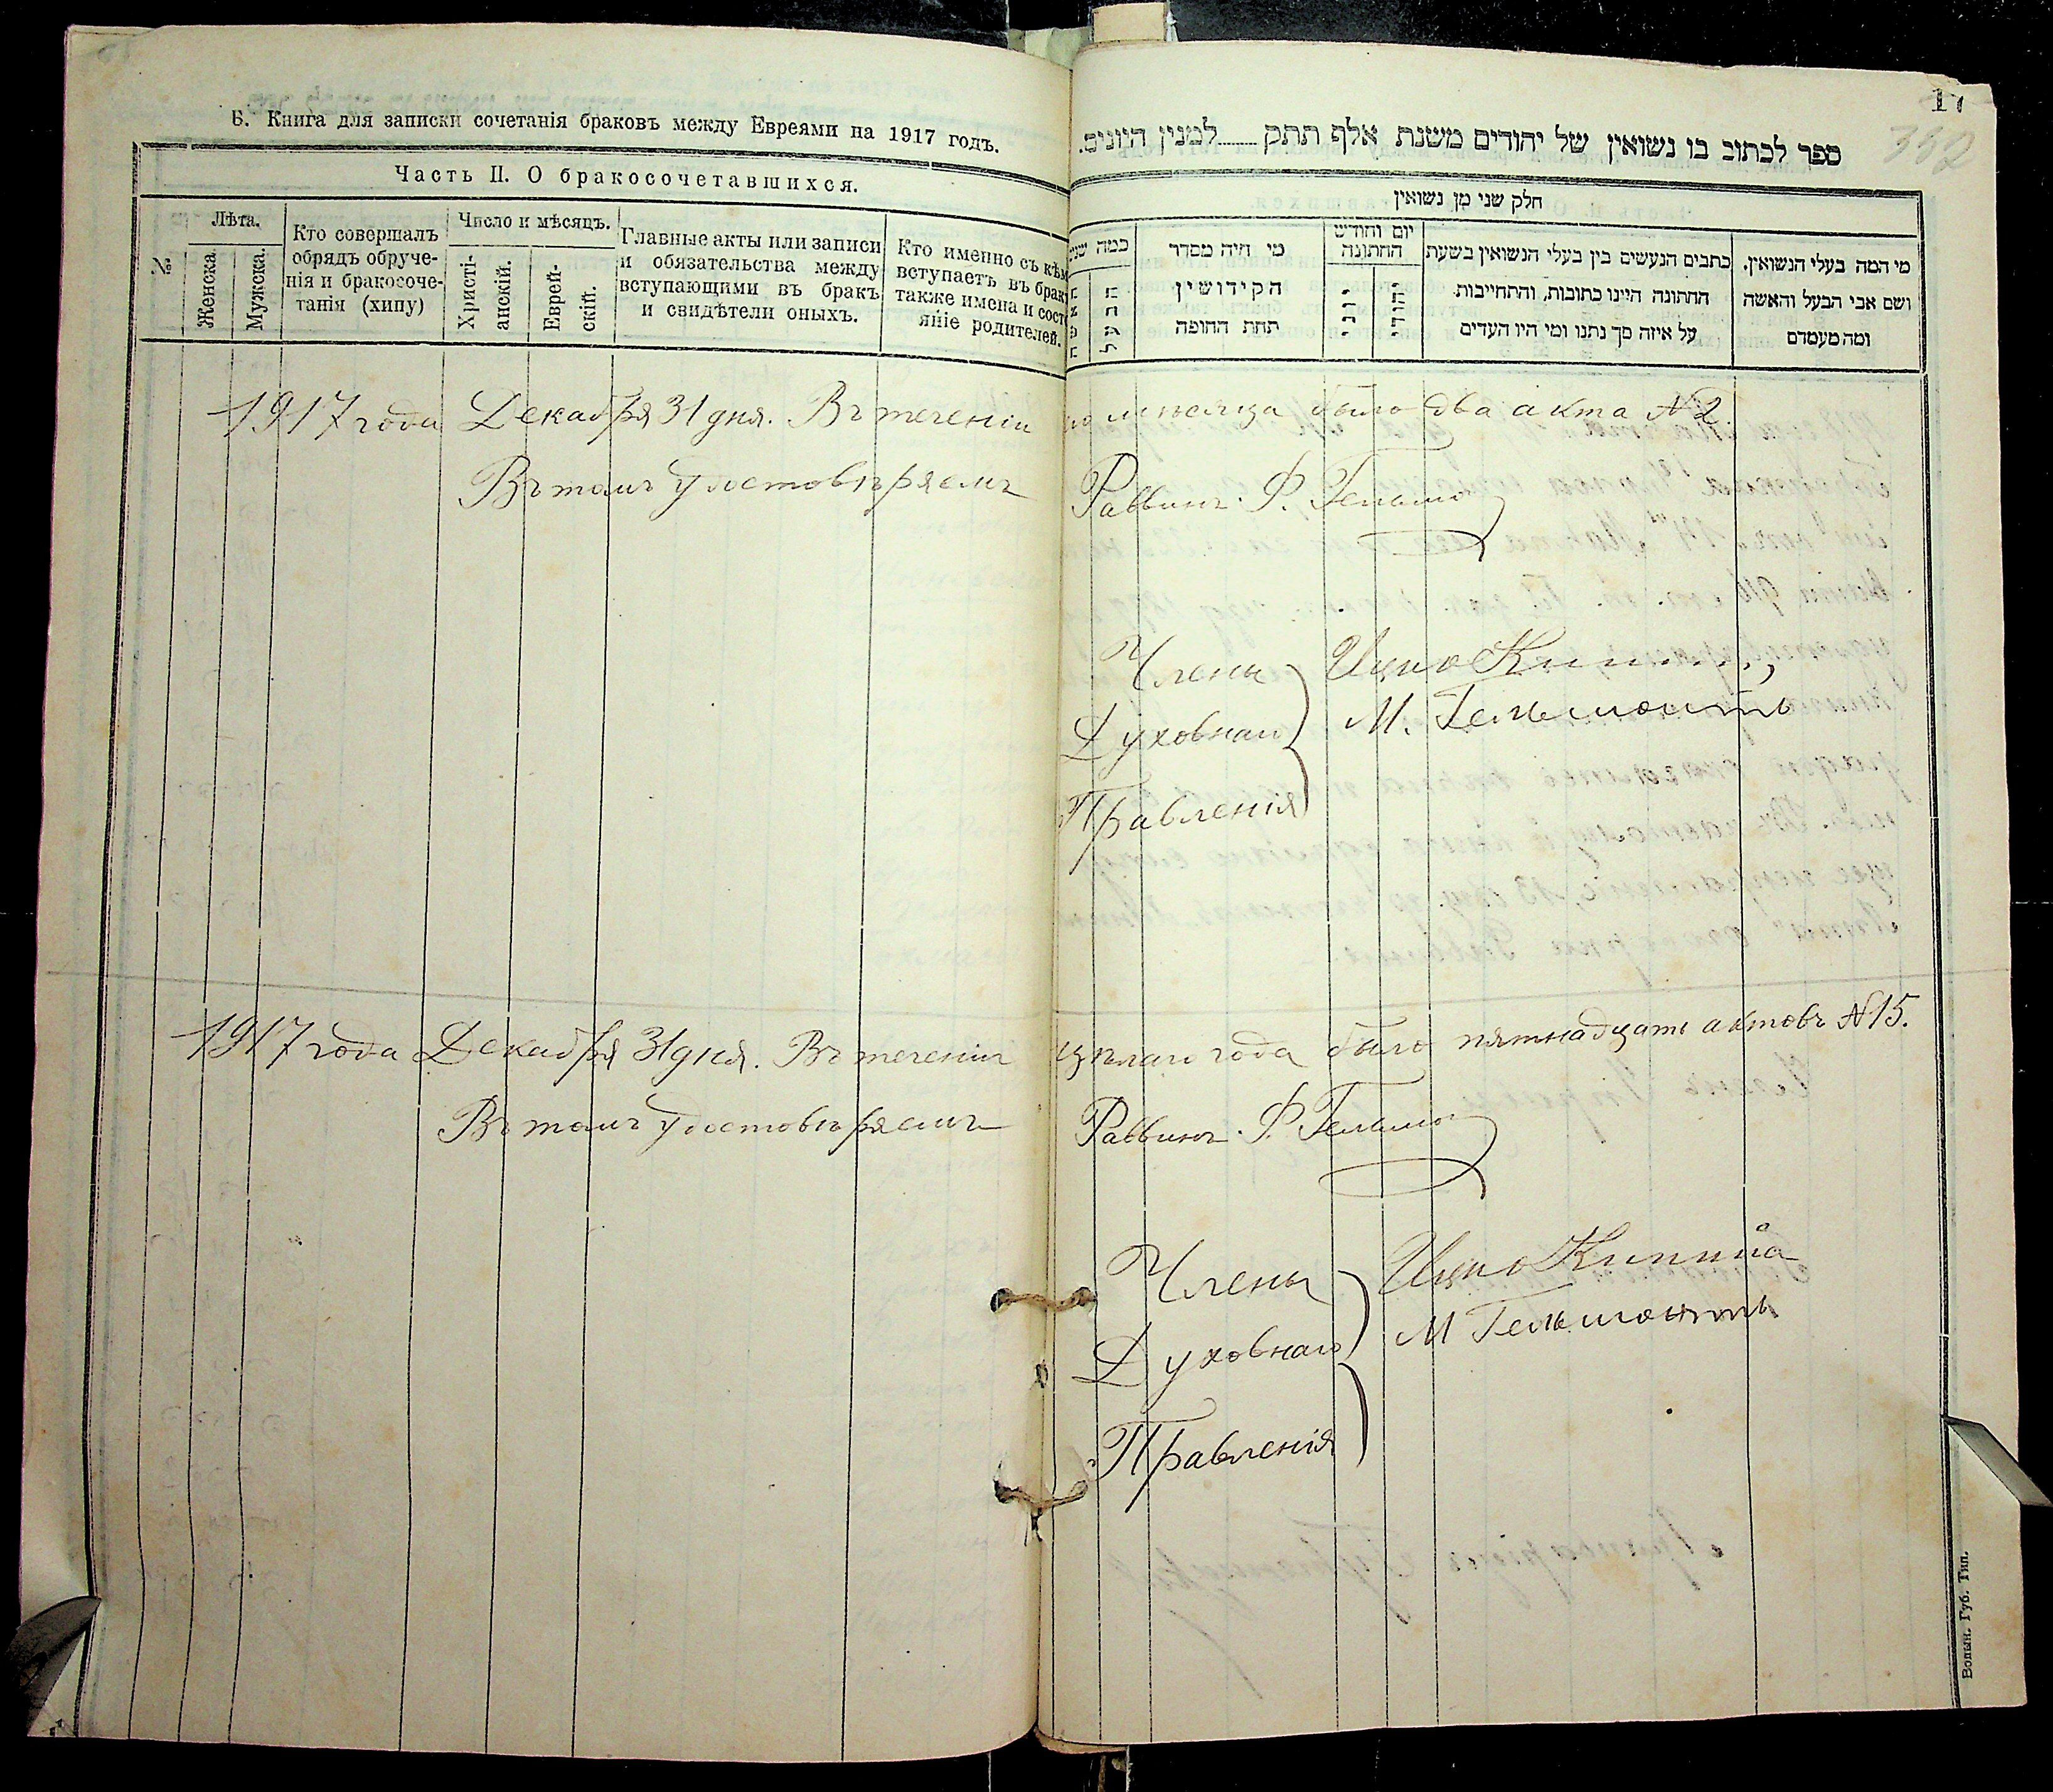 Б. Книга для записки сочетанія браковъ между Евреями на 1917 годъ.
Часть II. О бракосочетавшихся.
№
Лѣта.
Женска.
Мужска.
Кто совершалъ
обрядъ обруче-
нія и бракосоче-
танія (хипу)
Число и мѣсяцъ.
Христі-
анскій.
Еврей-
скій.
Главные акты или записи
и обязательства между
вступающими въ бракъ
и свидѣтели оныхъ.
Кто именно съ кѣм
вступаетъ въ брак
также имена и сост
яніе родителей.
17
332
ספר לכתוב בו נשואין של יהודים משנת אלף תתק ...... למנין היונים.
חלק שני מן נשואין
מי המה בעלי הנשואין.
ושם אבי הבעל והאשה
ומה מעמדם
כתבים הנעשים בין בעלי הנשואין בשעת
החתונה היינו כתובות, והתחייבות
על איזה סך נתנו ומי היו העדים
יום וחודש
החתונה
יהודי
יוני
מי היה מסדר
הקידושין
תחת החופה
כמה שני
הבעל
האשה
1917 года Декабря 31 дня. Въ теченіи го мѣсяца было два акта №2
Въ томъ удостовѣряемъ Раввинъ Ф. Гельмо
Члены
Духовнаго
Правленія
Ицко
М. Гельмонтъ
1917 года Декабря 31 дня. Въ теченіи цѣлаго года было пятнадцать актовъ №15.
Въ томъ удостовѣряемъ Раввинъ Ф. Гельмо
Члены
Духовнаго
Правленія
Ицко Кипнина
М Гельмонтъ
Волын. Губ. Тип.